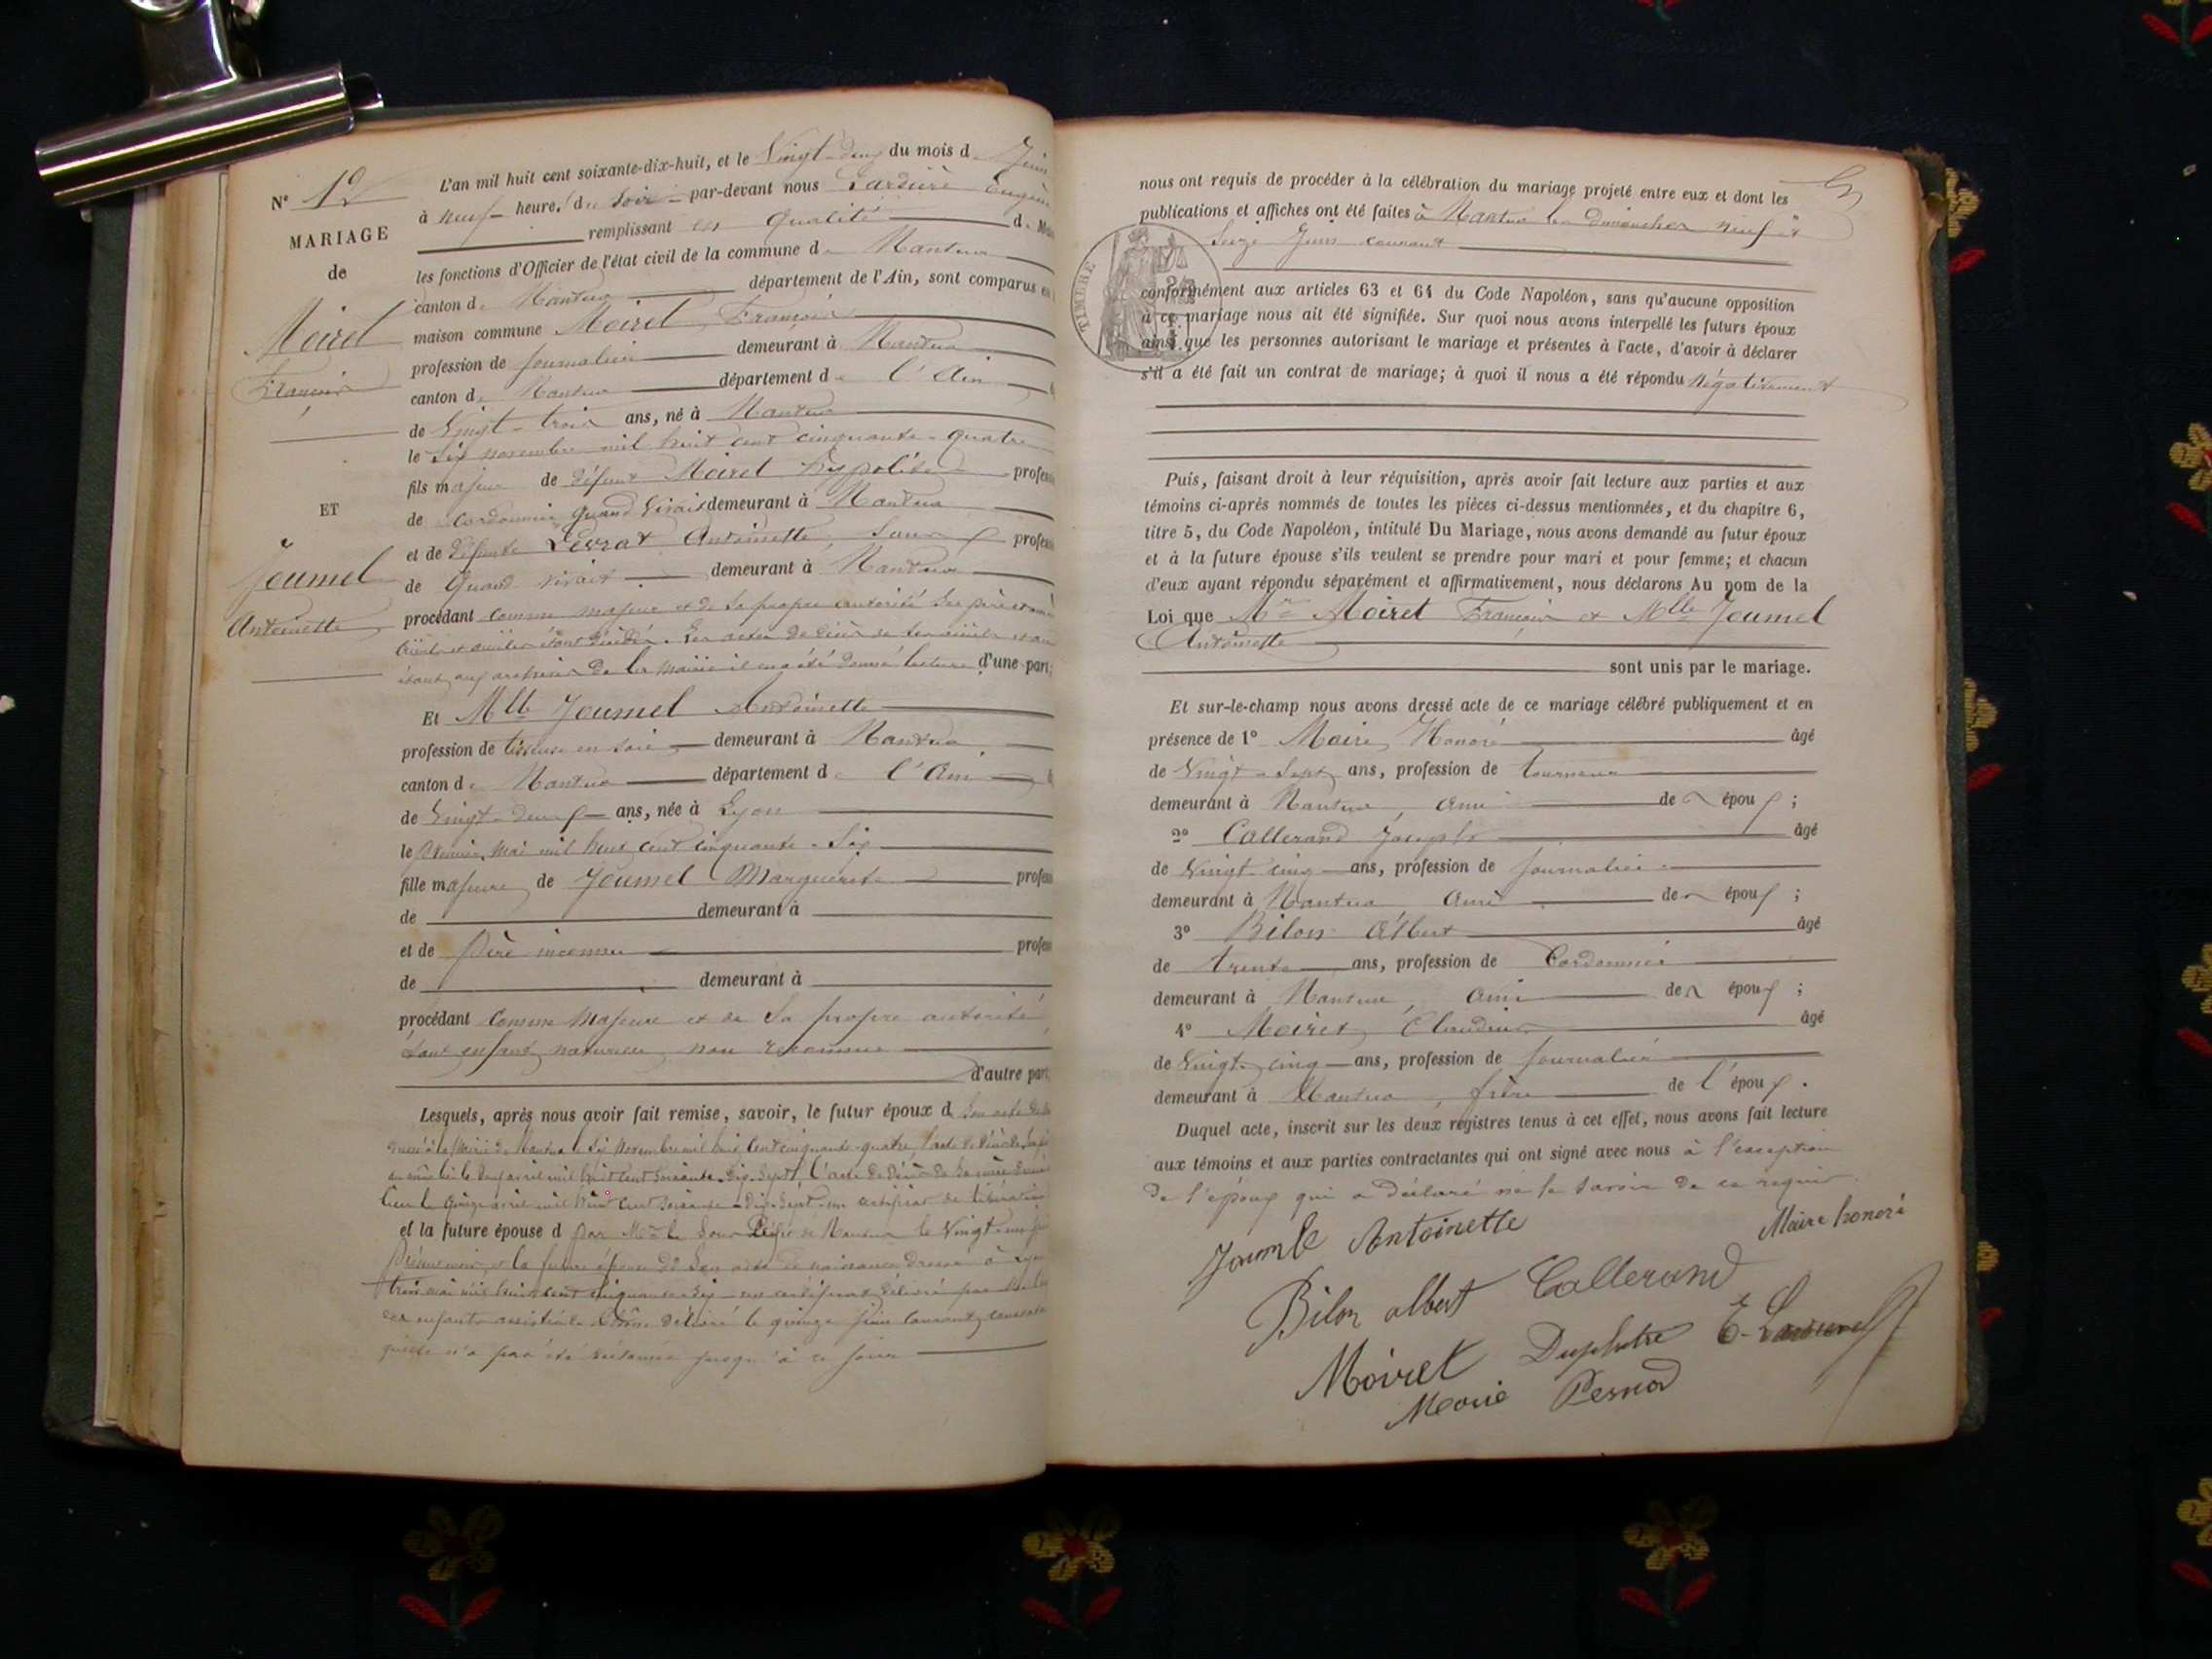 N° 12
MARIAGE
de
Moiret
François
ET
Joumel
Antoinette
L'an mil huit cent soixante-dix-huit, et le Vingt-deux du mois d. Juin
à neuf heure. du Soir par-devant nous Lardière Eugène
remplissant en qualité d. Mai
les fonctions d'Officier de l'état civil de la commune d. Nantua
canton d. Nantua département de l'Ain, sont comparus en
maison commune Moiret François
profession de journalier demeurant à Nantua
canton d. Nantua département d. l'Ain
de Vingt-trois ans, né à Nantua
le Six novembre mil huit cent cinquante-quatre
fils majeur de défunt Moiret hypolite profess
de cordonnier quand vivait demeurant à Nantua
et de défunte Levrat Antoinette, Sans profess
de quand vivait demeurant à Nantua
procédant comme majeur et de sa propre autorité ses père et mère
étant aux archives de la mairie il en a été donné lecture d'une part;
Et Mlle Joumel Antoinette
profession de tisseuse en soie demeurant à Nantua
canton d. Nantua département d. l'Ain
de Vingt-deux ans, née à Lyon
le premier mai mil huit cent cinquante-Six
fille majeure de Joumel Marguerite profess
de demeurant à
et de père inconnu profess
de demeurant à
procédant comme majeure et de sa propre autorité
étant enfant naturelle non reconnue
d'autre part
Lesquels, après nous avoir fait remise, savoir, le futur époux d. Son acte de
à la Mairie de Nantua le Six Novembre mil huit cent cinquante-quatre, l'acte de décès de
le avril mil huit cent soixante-dix-sept, l'acte de décès de sa mère
lieu le quinze avril mil huit cent soixante-dix-sept un certificat de libération
et la future épouse d par Mr le Sous Préfet de Nantua le Vingt-un
la future épouse de Son acte de naissance dressé à Lyon
trois mai mil huit cent cinquante-six un certificat délivré par
des enfants assistés délivré le quinze Juin courant
qu'elle n'a pas été réclamée jusqu'à ce jour
nous ont requis de procéder à la célébration du mariage projeté entre eux et dont les
publications et affiches ont été faites à Nantua les dimanches neuf et
Seize Juin courant
TIMBRE
conformément aux articles 63 et 64 du Code Napoléon, sans qu'aucune opposition
à ce mariage nous ait été signifiée. Sur quoi nous avons interpellé les futurs époux
ainsi que les personnes autorisant le mariage et présentes à l'acte, d'avoir à déclarer
s'il a été fait un contrat de mariage; à quoi il nous a été répondu négativement
Puis, faisant droit à leur réquisition, après avoir fait lecture aux parties et aux
témoins ci-après nommés de toutes les pièces ci-dessus mentionnées, et du chapitre 6,
titre 5, du Code Napoléon, intitulé Du Mariage, nous avons demandé au futur époux
et à la future épouse s'ils veulent se prendre pour mari et pour femme; et chacun
d'eux ayant répondu séparément et affirmativement, nous déclarons Au nom de la
Loi que Mr Moiret François et Mlle Joumel
Antoinette
sont unis par le mariage.
Et sur-le-champ nous avons dressé acte de ce mariage célébré publiquement et en
présence de 1° Maire Honoré âgé
de Vingt-Sept ans, profession de tourneur
demeurant à Nantua, ami de époux ;
2° Callerand Joseph âgé
de Vingt-cinq ans, profession de journalier
demeurant à Nantua ami de époux ;
3° Bilon Albert âgé
de trente ans, profession de Cordonnier
demeurant à Nantua, ami de époux ;
4° Moiret Claudius âgé
de Vingt-cinq ans, profession de journalier
demeurant à Nantua, frère de l'époux.
Duquel acte, inscrit sur les deux registres tenus à cet effet, nous avons fait lecture
aux témoins et aux parties contractantes qui ont signé avec nous à l'exception
de l'époux qui a déclaré ne le savoir de ce requis.
Joumle Antoinette
Maire honoré
Bilon albert Callerand
Moiret
Marie Pernod